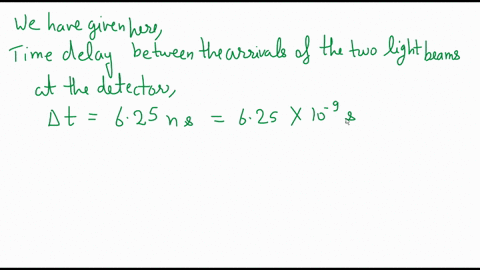 We have given here,
Time delay between the arrivals of the two light beams
at the detector,
Δt = 6.25 ns = 6.25 × 10⁻⁹ s